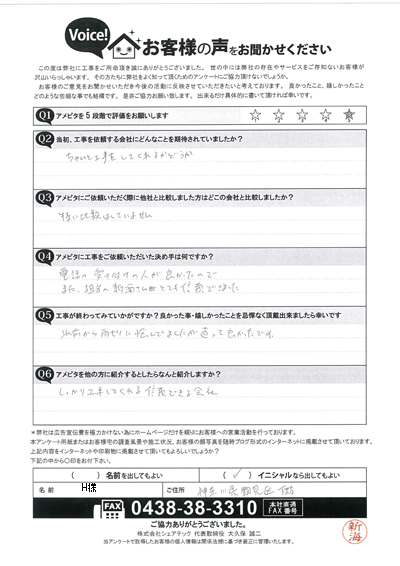 Voice!
お客様の声をお聞かせください
この度は弊社に工事をご用命頂き誠にありがとうございました。 世の中には弊社の存在やサービスをご存知ないお客様が
沢山いらっしゃいます。 その方たちに弊社をよく知って頂くためのアンケートにご協力頂けないでしょうか。
お客様のご意見をお聞かせいただき今後の活動に反映させていただきたいと考えております。 良かったこと、嬉しかったこと
どのような些細な事でも結構です。 是非ご協力お願い致します。 出来るだけ具体的に書いて頂ければ幸いです。
Q1 アメピタを 5 段階で評価をお願いします
Q2 当初、工事を依頼する会社にどんなことを期待されていましたか？
ちゃんと工事をしてくれるかどうか
Q3 アメピタにご依頼いただく際に他社と比較しました方はどこの会社と比較しましたか？
特に比較はしていません
Q4 アメピタに工事をご依頼いただいた決め手は何ですか？
電話の受け付けの人が良かったので
また、担当の新海さんがとても信頼できました
Q5 工事が終わってみていかがですか？良かった事・嬉しかったことを忌憚なく頂戴出来ましたら幸いです
以前から雨もりに悩んでましたが直って良かったです。
Q6 アメピタを他の方に紹介するとしたらなんと紹介しますか？
しっかり工事してくれる信頼できる会社
＊弊社は広告宣伝費を極力かけない為にホームページだけを頼りにお客様への営業活動を行っております。
本アンケート用紙またはお客様宅の調査風景や施工状況、お客様の顔写真を随時ブログ形式のインターネットに掲載させて頂いております。
上記内容をインターネットや印刷物に掲載させて頂いてもよろしいでしょうか？
下記の中から〇印をお付下さい。
（ ）名前を出してもよい （✓）イニシャルなら出してもよい
名 前 H様 ご住所 神奈川県鶴見区
FAX 0438-38-3310 本社直通 FAX 番号
ご協力ありがとうございました。
株式会社シェアテック 代表取締役 太久保 誠二
当アンケートで取得したお客様の個人情報は関係法規に基づき厳正に管理いたします。
新海